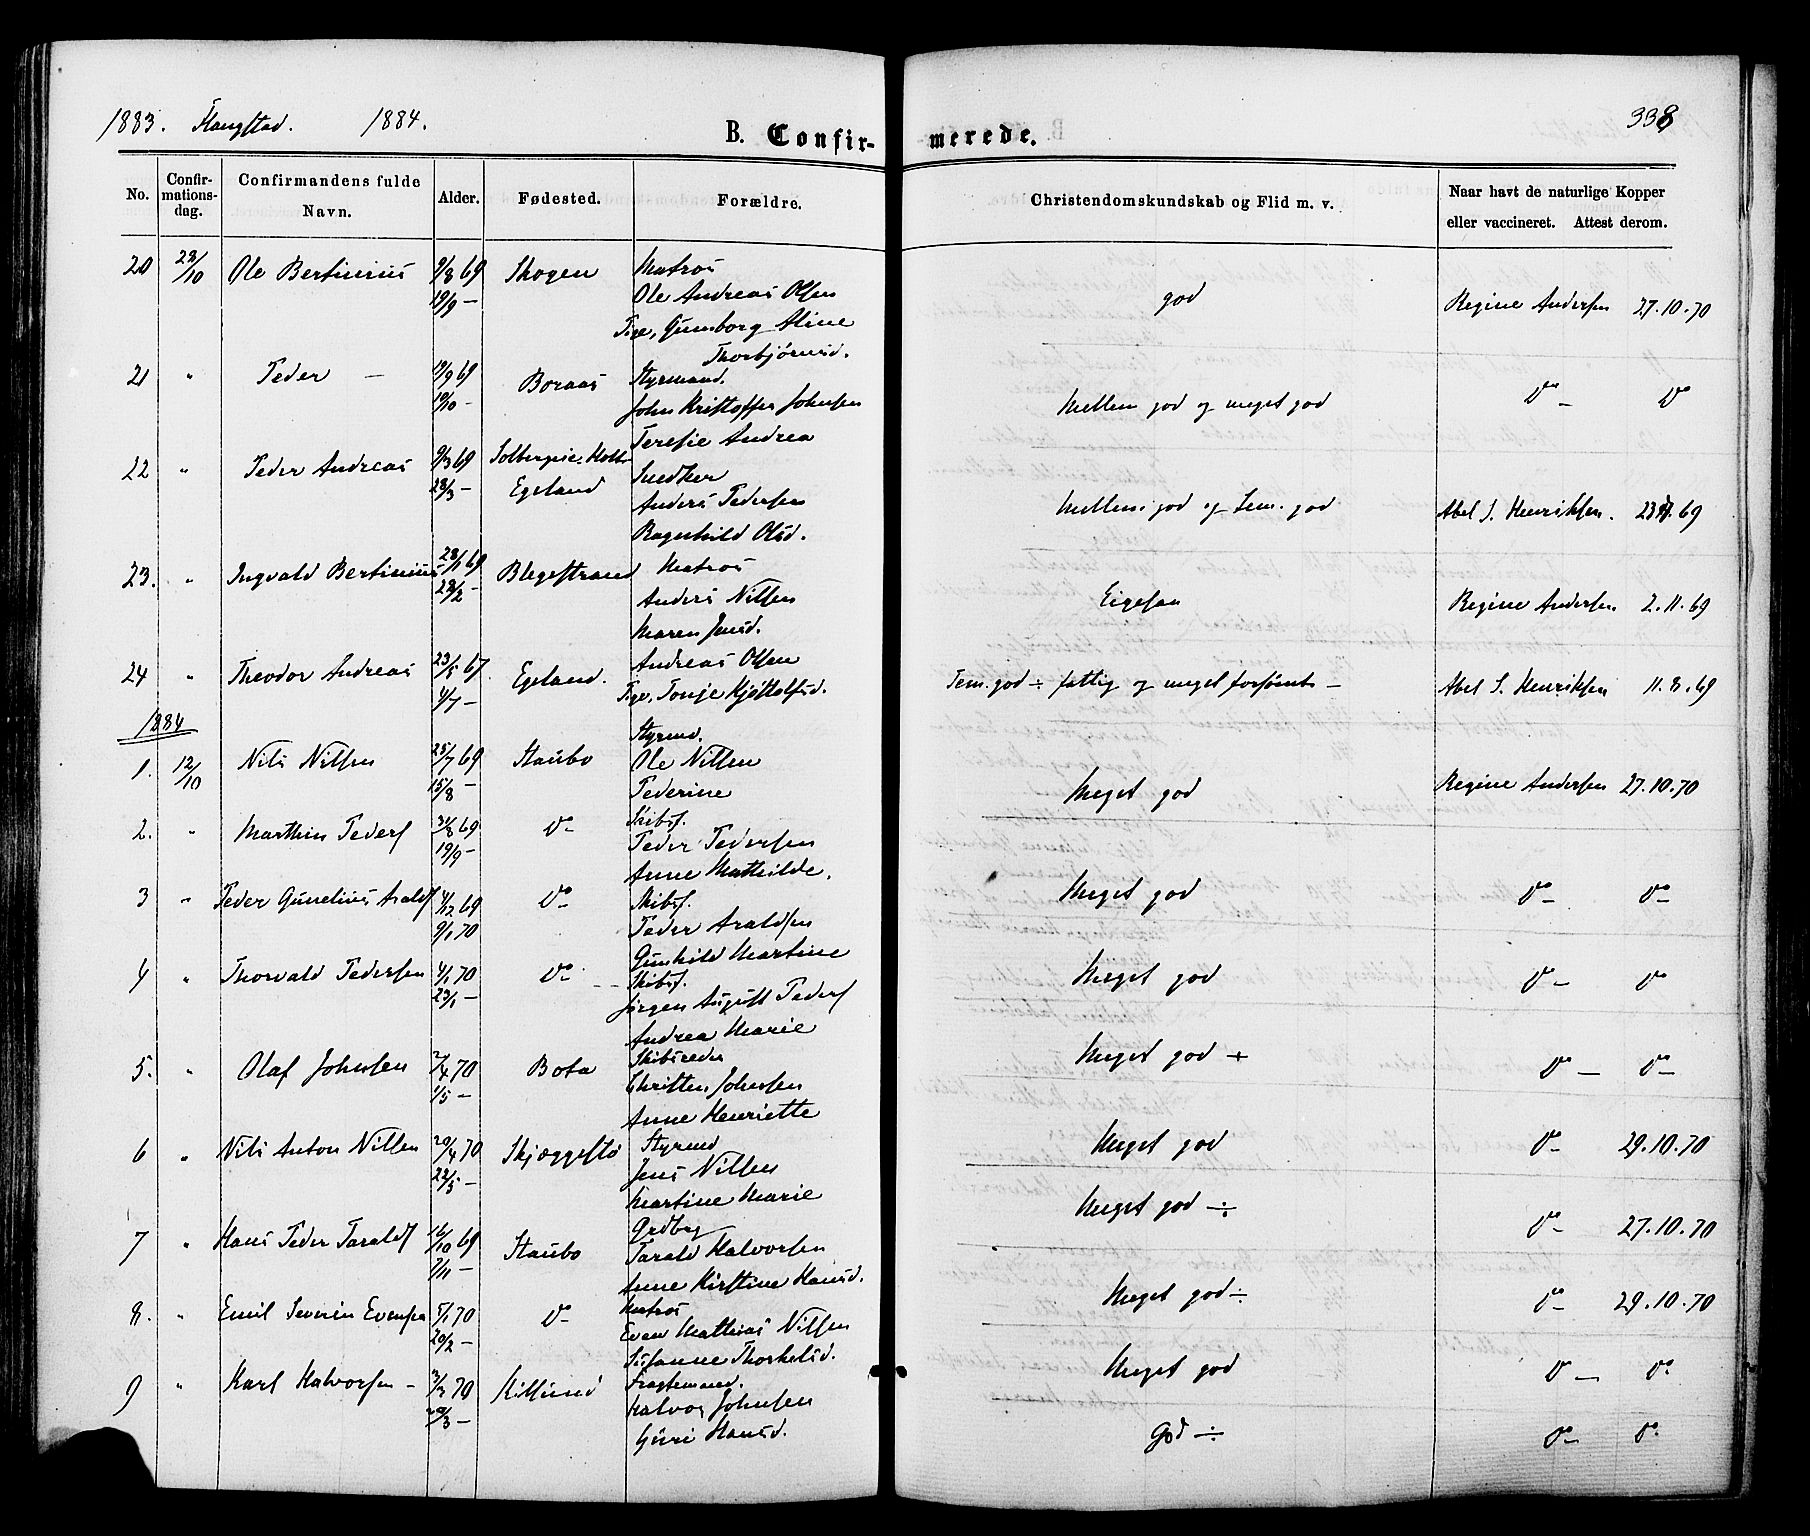 1883. Flangstad. 1884.
338
B. Confir-merede.
No. Confir-mations-dag. Confirmandens fulde Navn. Alder. Fødested. Forældre. Christendomskundskab og Flid m. v. Naar havt de naturlige Kopper eller vaccineret. Attest derom.
20 28/10 Ole Bertinius 9/8 69 Skogen Matros
19/9 — Ole Andreas Olsen god Regine Andersen 27.10.70
Pige, Gunborg Aline
Thorbjørnsd.
21 " Peder — 19/9 69 Boraas Styrmand.
10/10 — John Kristoffer Johnsen Mellem god og meget god Do — Do
Teresie Andrea
22 " Peder Andreas 9/3 69 Snedker
28/3 — Egeland Anders Pedersen Mellem god og Tem. god Abel S. Henriksen. 69
Ragnhild Olsd.
23. " Ingvald Bertinius 28/1 69 Blegestrand Matros
28/2 — Anders Nilsen Regine Andersen 2.11.69
Maren Jensd.
24 " Theodor Andreas 23/5 67. Egeland. Andreas Olsen
4/7 — Pige, Tonje Kjøttolfsd. Tem. god ÷ fattig og meget forsømt — Abel S. Henriksen 11.8.69
1884
Styrmd.
1. 12/10 Nils Nilsen 25/7 69 Staubo Ole Nilsen
15/8 — Pederine Meget god Regine Andersen 27.10.70
2. " Marthin Peders 31/8 69 Do — Skibsf.
19/9 — Peder Pedersen
Anne Mathilde. Meget god Do — Do —
3 " Peder Gunelius Aralds 4/12 69 Do — Skibsf.
9/1 70 Peder Araldsen
Gunhild Martine Meget god Do — Do
4 " Thorvald Pedersen 4/1 70 Do — Skibsf.
23/1 — Jørgen August Peders
Andrea Marie Meget god +
5. " Olaf Johnsen 2/4 70 Bota Skibsreder Do — Do —
1/5 — Christen Johnsen
Anne Henriette
6 " Nils Anton Nilsen 20/4 70 Skjæggestø Styrmd Meget god Do — 29.10.70
22/5 — Jens Nilsen
Martine Marie Meget god ÷
7 " Hans Peder Taralds 16/10 69 Staubo Grdbrg Do — 27.10.70
7/11 — Tarald Halvorsen
Anne Kirstine Hansd.
8. " Emil Severin Evensen 5/1 70 Do — Matros Meget god ÷ Do — 29.10.70
20/2 — Even Mathias Nilsen
Susanne Thorkelsd.
9 " Karl Halvorsen — 3/3 70 Killund Fragtemand. Meget god Do — Do
20/3 — Halvor Johnsen
Guri Hansd. God ÷ Do — Do